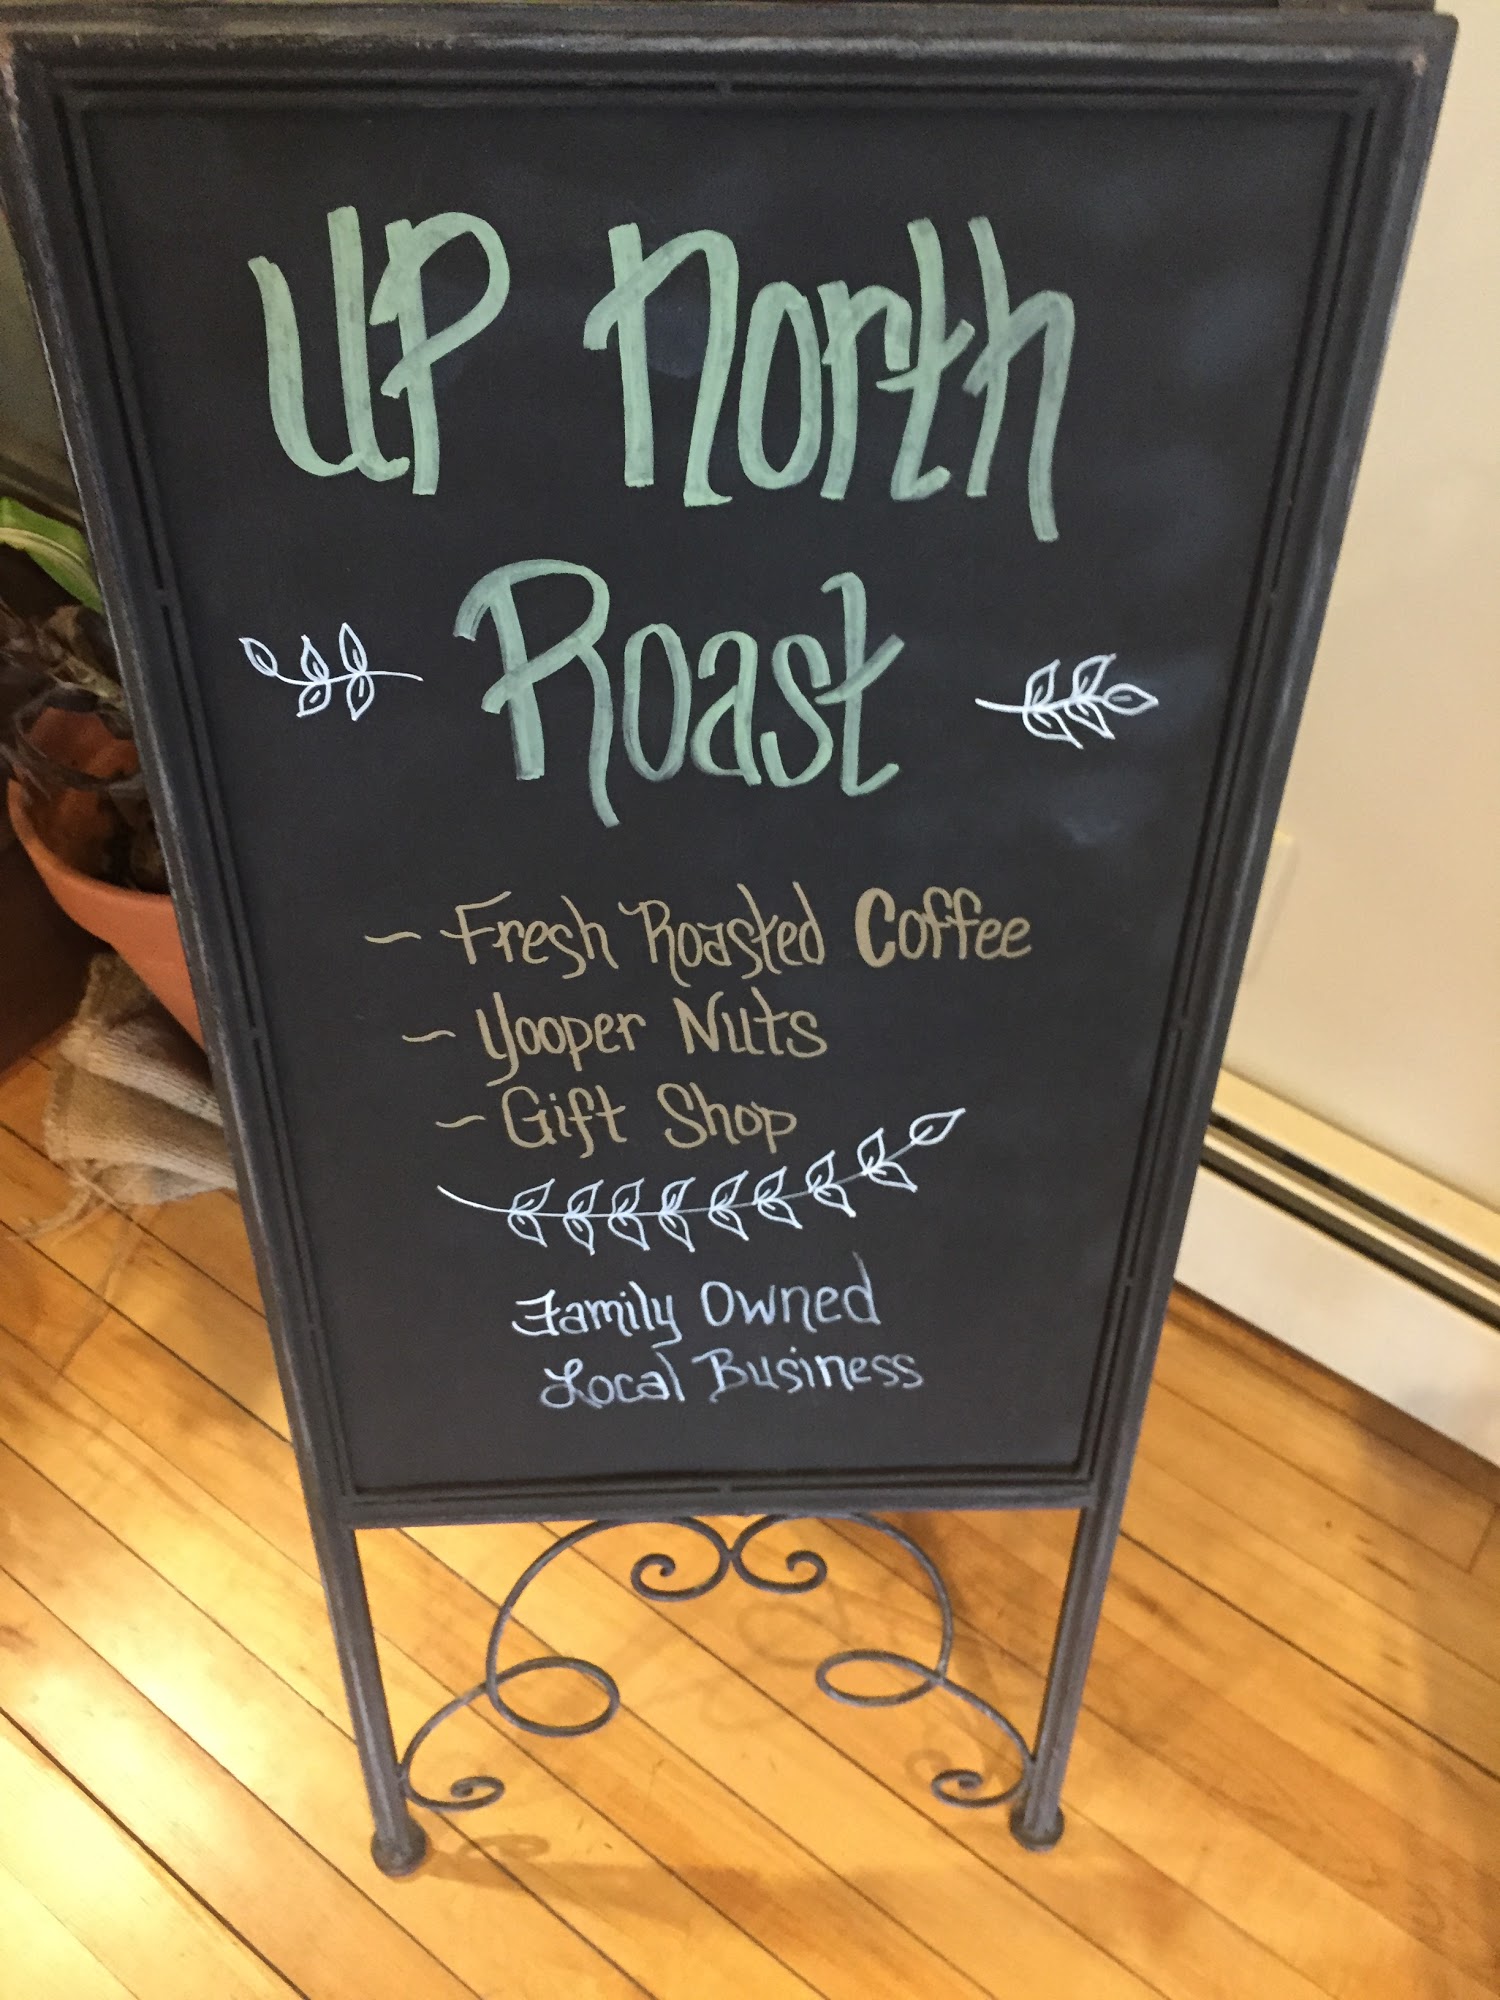 UP North
Roast
~ Fresh Roasted Coffee
~ Yooper Nuts
~ Gift Shop
Family Owned
Local Business